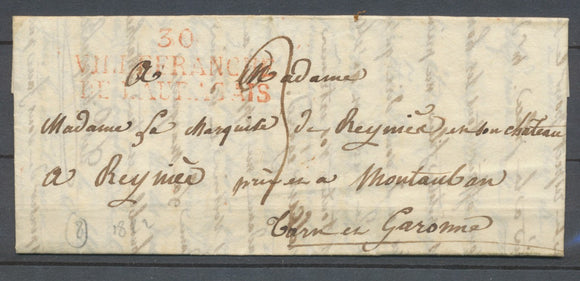 30
VILLEFRANCHE
DE LAURAGAIS
A Madame
Madame La Marquise de Reyniès en son château
A Reyniès près Montauban
Tarn et Garonne